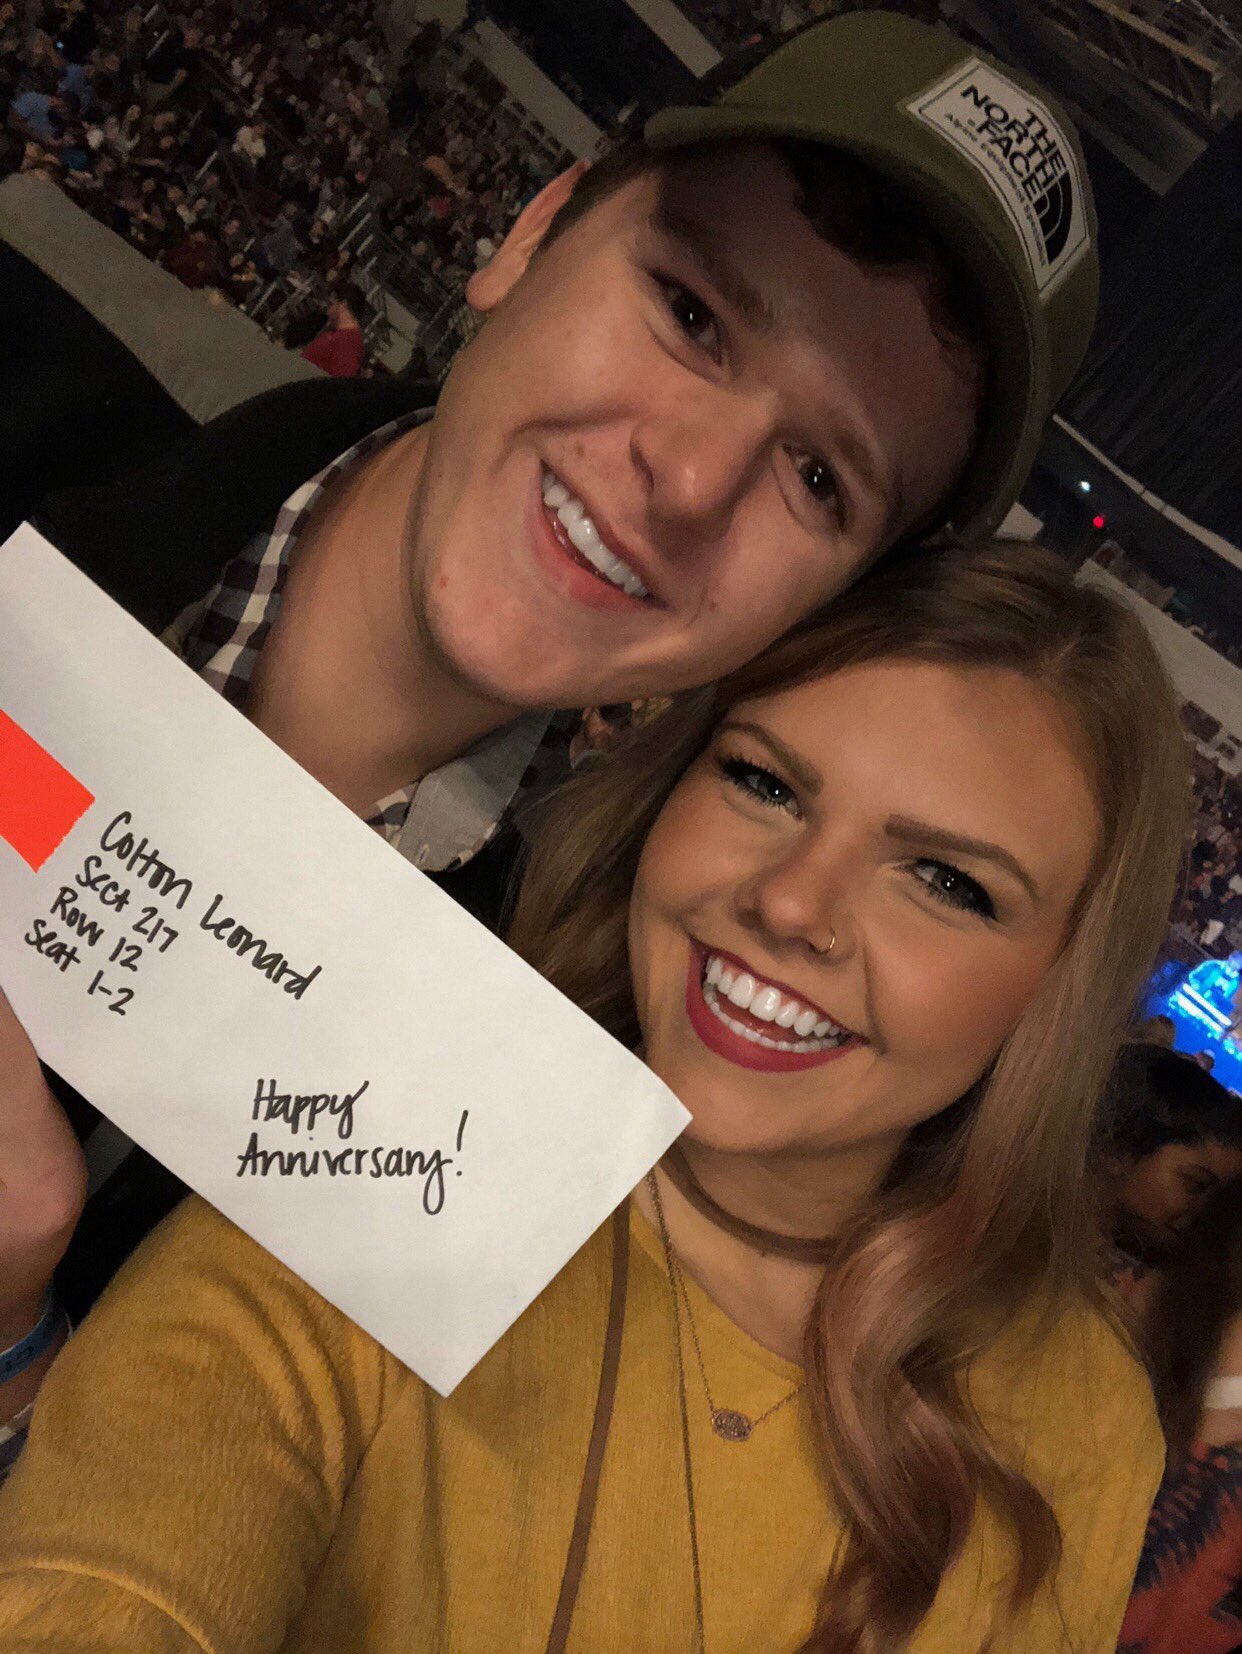 THE
NORTH
FACE
Colton Leonard
Sect 217
Row 12
Seat 1-2
Happy
Anniversary!